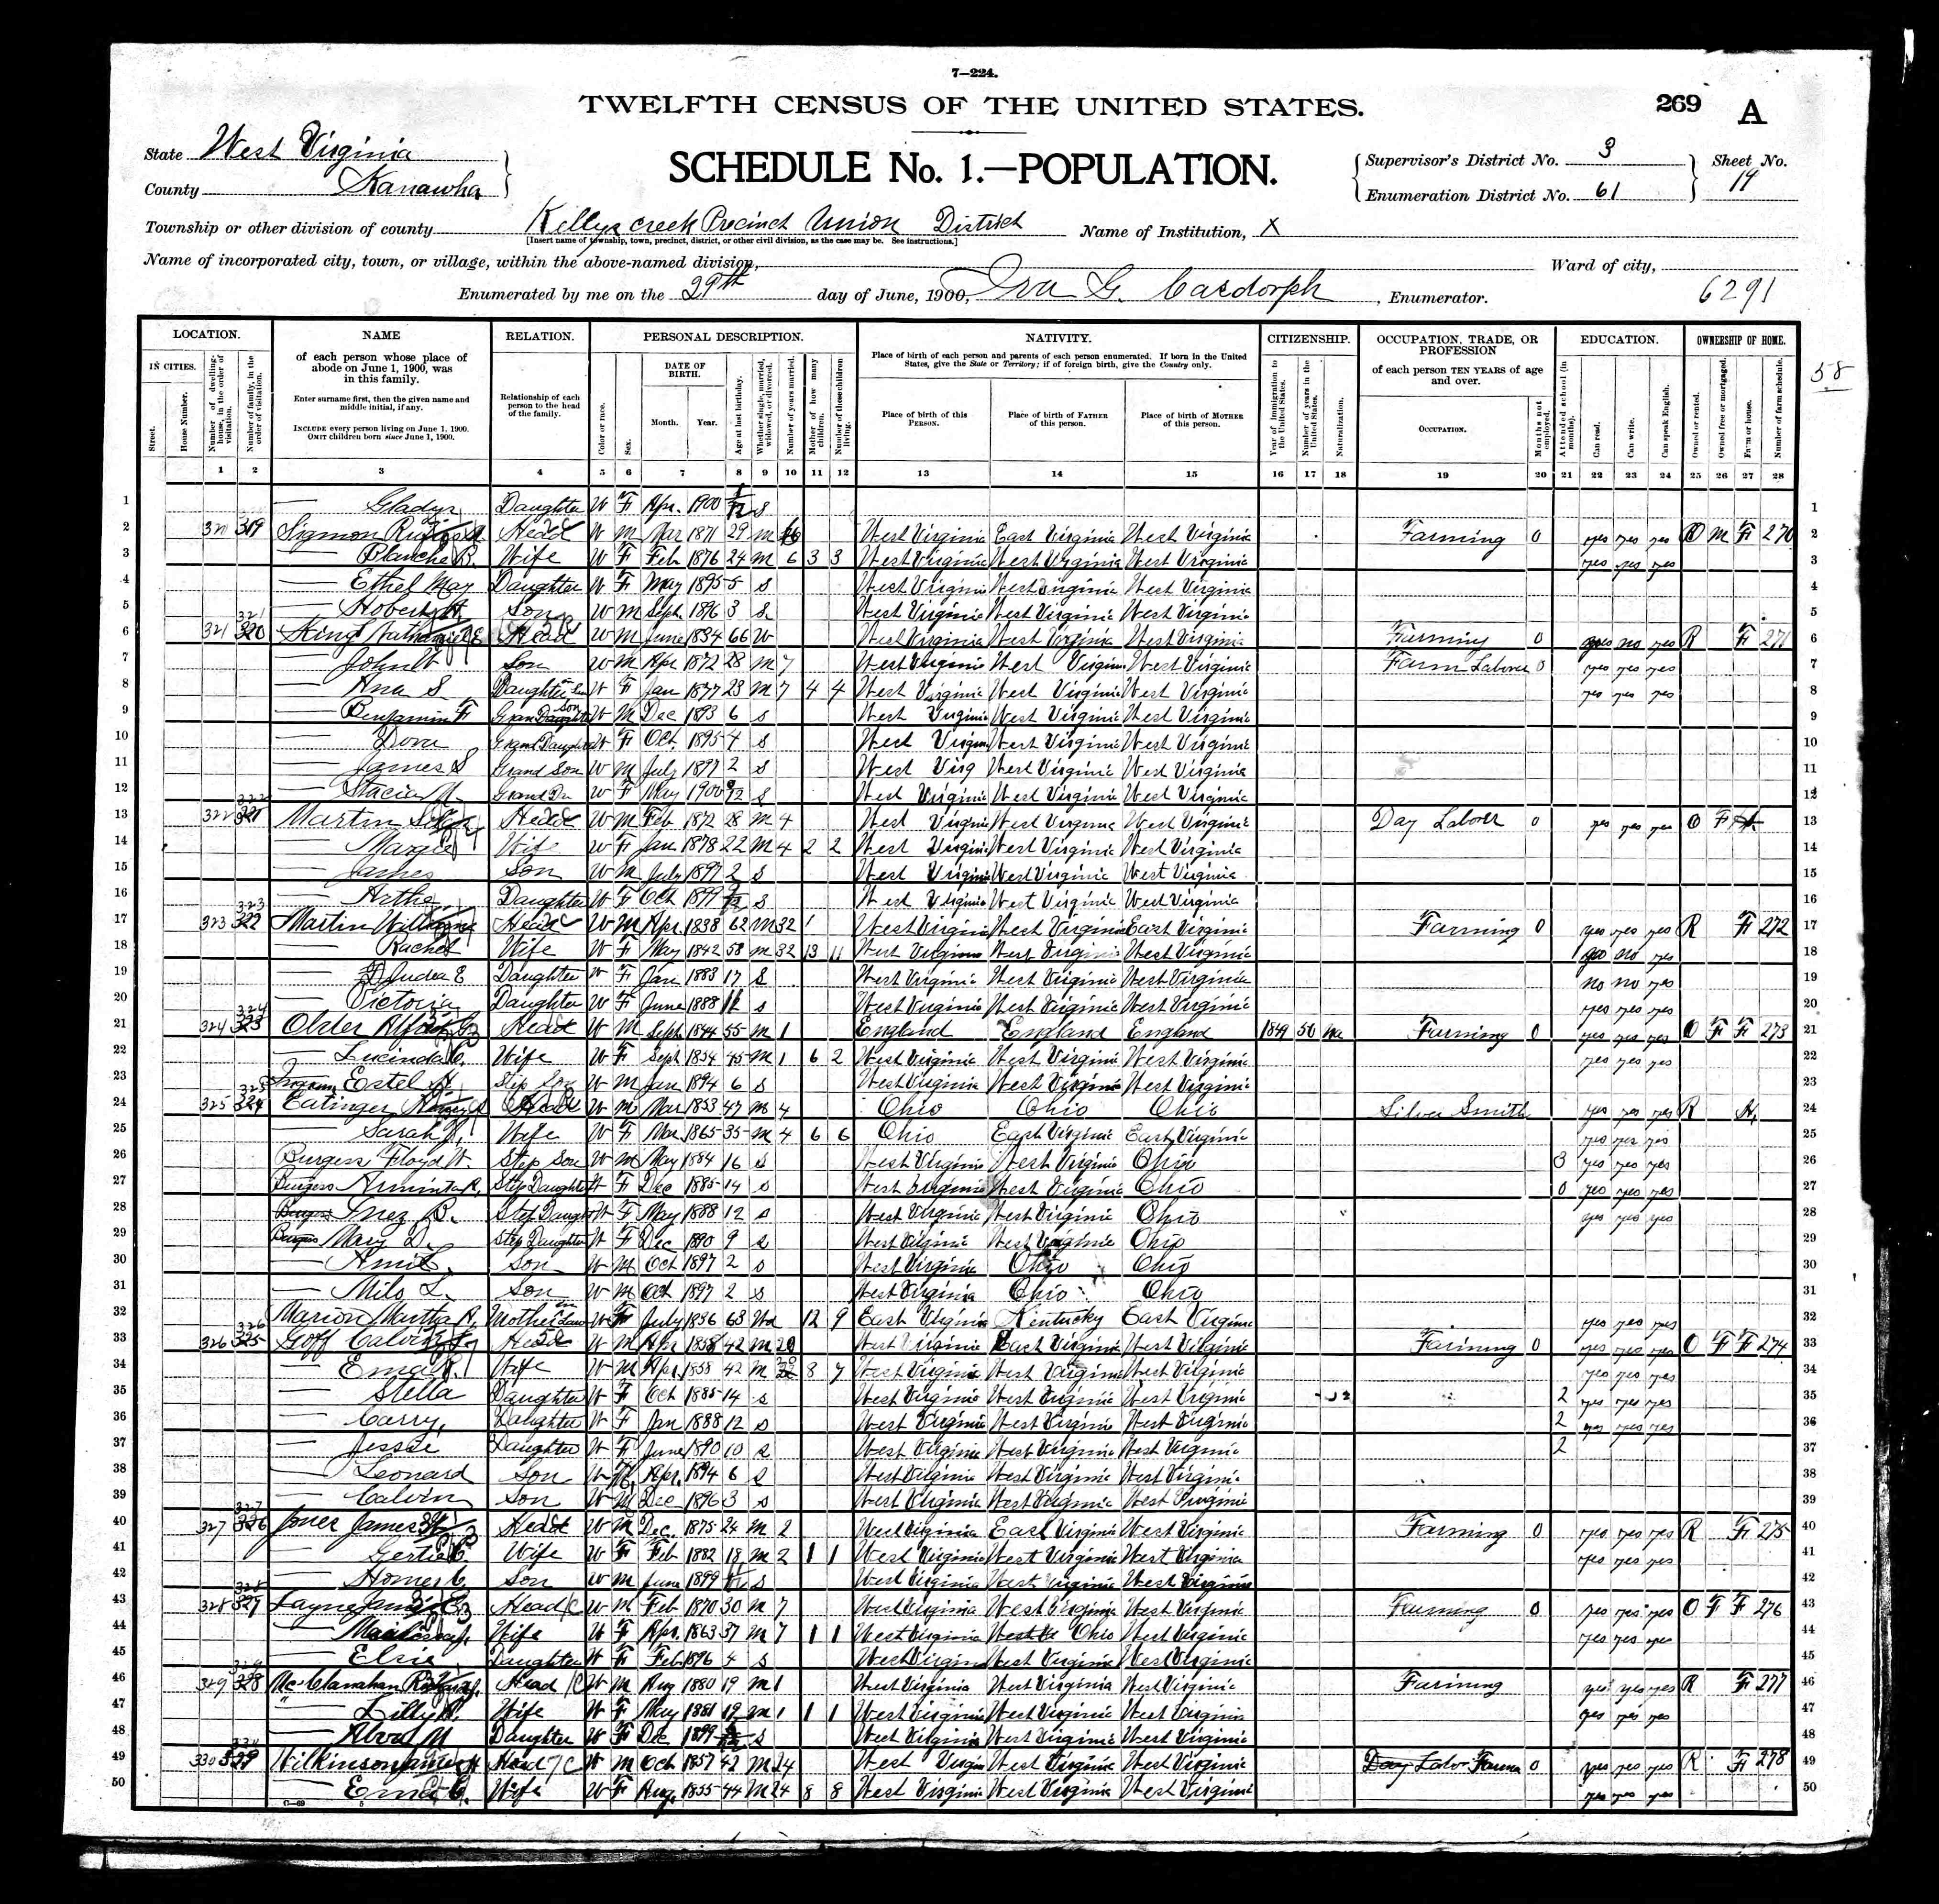 7—224.
TWELFTH CENSUS OF THE UNITED STATES.
269 A
State West Virginia
County Kanawha
SCHEDULE No. 1.—POPULATION.
Supervisor's District No. 3
Enumeration District No. 61
Sheet No.
19
Township or other division of county Kellys creek Precinct Union District
[Insert name of township, town, precinct, district, or other civil division, as the case may be. See instructions.]
Name of Institution, X
Name of incorporated city, town, or village, within the above-named division,
Ward of city,
Enumerated by me on the 29th day of June, 1900, Ira G. Casdorph, Enumerator.
6291
58
LOCATION.
IN CITIES.
Street.
House Number.
Number of dwelling-house, in the order of visitation.
Number of family, in the order of visitation.
NAME
of each person whose place of abode on June 1, 1900, was in this family.
Enter surname first, then the given name and middle initial, if any.
INCLUDE every person living on June 1, 1900.
OMIT children born since June 1, 1900.
RELATION.
Relationship of each person to the head of the family.
PERSONAL DESCRIPTION.
Color or race.
Sex.
DATE OF BIRTH.
Month. Year.
Age at last birthday.
Whether single, married, widowed, or divorced.
Number of years married.
Mother of how many children.
Number of these children living.
NATIVITY.
Place of birth of each person and parents of each person enumerated. If born in the United States, give the State or Territory; if of foreign birth, give the Country only.
Place of birth of this PERSON.
Place of birth of FATHER of this person.
Place of birth of MOTHER of this person.
CITIZENSHIP.
Year of immigration to the United States.
Number of years in the United States.
Naturalization.
OCCUPATION, TRADE, OR PROFESSION
of each person TEN YEARS of age and over.
OCCUPATION.
Months not employed.
EDUCATION.
Attended school (in months).
Can read.
Can write.
Can speak English.
OWNERSHIP OF HOME.
Owned or rented.
Owned free or mortgaged.
Farm or house.
Number of farm schedule.
1 2 3 4 5 6 7 8 9 10 11 12 13 14 15 16 17 18 19 20 21 22 23 24 25 26 27 28
1 — Gladys Daughter W F Apr. 1900 1/12 S 1
2 319 Sigmon Head W M Mar 1871 29 M 6 West Virginia East Virginia West Virginia Farming 0 yes yes yes O M F 270 2
3 — Blanche B. Wife W F Feb 1876 24 M 6 3 3 West Virginia West Virginia West Virginia yes yes yes 3
4 — Ethel May Daughter W F May 1895 5 S West Virginia West Virginia West Virginia 4
5 — Hobert H Son W M Sept 1896 3 S West Virginia West Virginia West Virginia 5
6 321 320 King Head W M June 1834 66 W West Virginia West Virginia West Virginia Farming 0 no yes R F 271 6
7 — John W Son W M Apr 1872 28 M 7 West Virginia West Virginia West Virginia Farm Laborer 0 yes yes yes 7
8 — Ana S Daughter in law W F Jan 1877 23 M 7 4 4 West Virginia West Virginia West Virginia yes yes yes 8
9 — Benjamin F Gran son W M Dec 1893 6 S West Virginia West Virginia West Virginia 9
10 — Dora Grand Daughter W F Oct. 1895 4 S West Virginia West Virginia West Virginia 10
11 — James S Grand Son W M July 1897 2 S West Virg West Virginia West Virginia 11
12 — Stacia Grand Da W F May 1900 S West Virginia West Virginia West Virginia 12
13 322 321 Martin Head W M Feb 1872 28 M 4 West Virginia West Virginia West Virginia Day Laborer 0 yes yes yes O F 13
14 — Margie Wife W F Jan 1878 22 M 4 2 2 West Virginia West Virginia West Virginia 14
15 — James Son W M July 1897 2 S West Virginia West Virginia West Virginia 15
16 — Artha Daughter W F Oct 1899 S West Virginia West Virginia West Virginia 16
17 323 322 Martin William Head W M Apr. 1838 62 M 32 West Virginia West Virginia East Virginia Farming 0 yes yes yes R F 272 17
18 — Rachel Wife W F May 1842 58 M 32 13 11 West Virginia West Virginia West Virginia no yes 18
19 — Daughter W F Jan 1883 17 S West Virginia West Virginia West Virginia no no yes 19
20 — Victoria Daughter W F June 1888 S West Virginia West Virginia West Virginia yes yes yes 20
21 324 323 Older Head W M Sept 1844 55 M 1 England England England 1849 50 Na Farming 0 yes yes yes O F F 273 21
22 — Lucinda C. Wife W F Sept 1854 45 M 1 6 2 West Virginia West Virginia West Virginia yes yes yes 22
23 Estel Step Son W M Jan 1894 6 S West Virginia West Virginia West Virginia 23
24 325 324 Eatinger Head W M Mar 1853 47 M 4 Ohio Ohio Ohio Silver Smith yes yes yes R H 24
25 — Sarah Wife W F Mar 1865 35 M 4 6 6 Ohio East Virginia East Virginia yes yes yes 25
26 Burgess Floyd W. Step Son W M May 1884 16 S West Virginia West Virginia Ohio 3 yes yes yes 26
27 Burgess Arminta R, Step Daughter W F Dec 1885 14 S West Virginia West Virginia Ohio 0 yes yes yes 27
28 Burgess Inez B. Step Daught W F May 1888 12 S West Virginia West Virginia Ohio yes yes yes 28
29 Burgess Mary D. Step Daughter W F Dec 1890 9 S West Virginia West Virginia Ohio 29
30 — Son W M Oct 1897 2 S West Virginia Ohio Ohio 30
31 — Milo L. Son W M Oct 1897 2 S West Virginia Ohio Ohio 31
32 Marion Martha A, Mother in Law W F July 1836 63 Wd 12 9 East Virginia Kentucky East Virginia yes yes yes 32
33 326 325 Goff Calvin Head W M Apr 1858 42 M 20 West Virginia East Virginia West Virginia Farming 0 yes yes yes O F F 274 33
34 — Wife W M Apr. 1858 42 M 8 7 West Virginia West Virginia West Virginia yes yes yes 34
35 — Stella Daughter W F Oct 1885 14 S West Virginia West Virginia West Virginia 2 yes yes yes 35
36 — Carry, Daughter W F Jan 1888 12 S West Virginia West Virginia West Virginia 2 yes yes yes 36
37 — Jessie Daughter W F June 1890 10 S West Virginia West Virginia West Virginia 2 37
38 — Leonard Son W M Apr. 1894 6 S West Virginia West Virginia West Virginia 38
39 — Calvin Son W M Dec 1896 3 S West Virginia West Virginia West Virginia 39
40 327 326 Jones James Head W M Dec. 1875 24 M 2 West Virginia East Virginia West Virginia Farming 0 yes yes yes R F 275 40
41 — Gertie C. Wife W F Feb 1882 18 M 2 1 1 West Virginia West Virginia West Virginia yes yes yes 41
42 — Homer C Son W M June 1899 S West Virginia West Virginia West Virginia 42
43 328 327 Layne James Head W M Feb 1870 30 M 7 West Virginia West Virginia West Virginia Farming 0 yes yes yes O F F 276 43
44 — Wife W F Apr. 1863 37 M 7 1 1 West Virginia Ohio West Virginia yes yes yes 44
45 — Elsie Daughter W F Feb 1896 4 S West Virginia West Virginia West Virginia 45
46 329 328 McClanahan Head W M Aug 1880 19 M 1 West Virginia West Virginia West Virginia Farming yes yes yes R F 277 46
47 — Lilly Wife W F May 1881 19 M 1 1 1 West Virginia West Virginia West Virginia yes yes yes 47
48 — M Daughter W F Dec 1899 S West Virginia West Virginia West Virginia 48
49 330 329 Wilkinson James H Head W M Oct 1857 42 M 24 West Virgin West Virginia West Virginia Day Labor Farmer 0 yes yes yes R F 278 49
50 — Ema C. Wife W F Aug. 1855 44 M 24 8 8 West Virginia West Virginia West Virginia yes yes yes 50